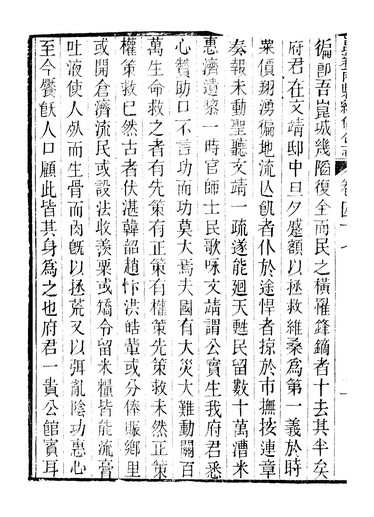 徧卽吾崑城幾陷復全而民之橫罹鋒鏑者十去其半矣
府君在文靖邸中旦夕蹙額以拯救維桑爲第一義於時
粟價翔湧徧地流亾飢者仆於途悍者掠於市撫按連章
奏報未動聖聽文靖一疏遂能廻天甦民留數十萬漕米
惠濟遺黎一時官師士民歌咏文靖謂公實生我府君悉
心贊助口不言功而功莫大焉夫國有大災大難動關百
萬生命救之者有先策有正策有權策先策救未然正策
權策救已然古者伏湛韓韶趙忭洪皓輩或分俸賑鄉里
或開倉濟流民或設法收羨粟或矯令留米糧皆能流膏
吐液使人歾而生骨而肉旣以拯荒又以弭亂陰功惠心
至今饜飫人口顧此皆其身爲之也府君一貴公館賓耳